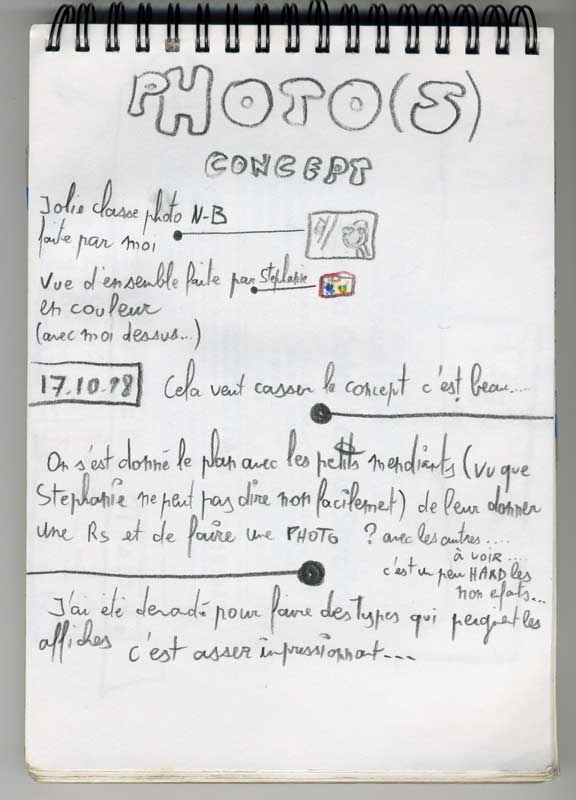 PHOTO(S)
CONCEPT
Jolie classe photo N-B
faite par moi
Vue d'ensemble faite par Stephanie
en couleur
(avec moi dessus...)
17.10.98 Cela veut casser le concept c'est beau....
On s'est donné le plan avec les petits mendiants (vu que
Stephanie ne peut pas dire non facilemet) de leur donner
une Rs et de faire une PHOTO ? avec les autres....
à voir....
c'est un peu HARD les
non efats...
J'ai été pour faire des types qui les
affiches c'est asser inpressionnat...